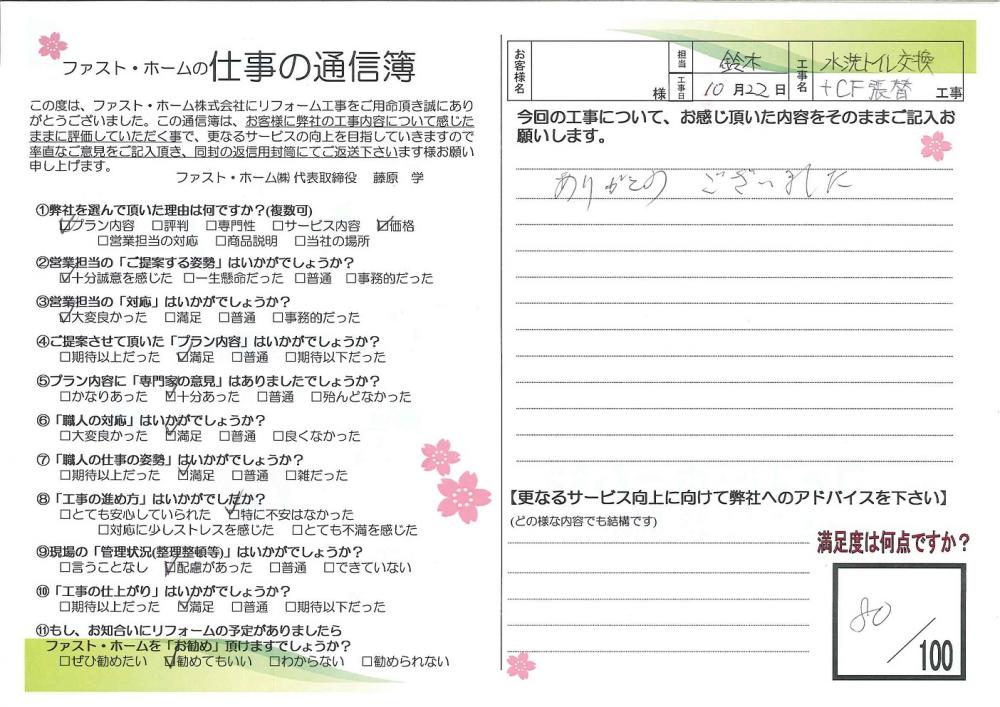 ファスト・ホームの仕事の通信簿
この度は、ファスト・ホーム株式会社にリフォーム工事をご用命頂き誠にあり
がとうございました。この通信簿は、お客様に弊社の工事内容について感じた
ままに評価していただく事で、更なるサービスの向上を目指していきますので
率直なご意見をご記入頂き、同封の返信用封筒にてご返送下さいます様お願い
申し上げます。
ファスト・ホーム㈱ 代表取締役 藤原 学
①弊社を選んで頂いた理由は何ですか?(複数可)
☑プラン内容 □評判 □専門性 □サービス内容 ☑価格
□営業担当の対応 □商品説明 □当社の場所
②営業担当の「ご提案する姿勢」はいかがでしょうか?
☑十分誠意を感じた □一生懸命だった □普通 □事務的だった
③営業担当の「対応」はいかがでしょうか?
☑大変良かった □満足 □普通 □事務的だった
④ご提案させて頂いた「プラン内容」はいかがでしょうか?
□期待以上だった ☑満足 □普通 □期待以下だった
⑤プラン内容に「専門家の意見」はありましたでしょうか?
□かなりあった ☑十分あった □普通 □殆んどなかった
⑥「職人の対応」はいかがでしょうか?
□大変良かった ☑満足 □普通 □良くなかった
⑦「職人の仕事の姿勢」はいかがでしょうか?
□期待以上だった ☑満足 □普通 □雑だった
⑧「工事の進め方」はいかがでしたか?
□とても安心していられた ☑特に不安はなかった
□対応に少しストレスを感じた □とても不満を感じた
⑨現場の「管理状況(整理整頓等)」はいかがでしょうか?
□言うことなし ☑配慮があった □普通 □できていない
⑩「工事の仕上がり」はいかがでしょうか?
□期待以上だった ☑満足 □普通 □期待以下だった
⑪もし、お知合いにリフォームの予定がありましたら
ファスト・ホームを「お勧め」頂けますでしょうか?
□ぜひ勧めたい ☑勧めてもいい □わからない □勧められない
お客様名 様 担当 鈴木 工事名 水洗トイレ交換
工事日 10月22日 +CF張替 工事
今回の工事について、お感じ頂いた内容をそのままご記入お
願いします。
ありがとの ございました
【更なるサービス向上に向けて弊社へのアドバイスを下さい】
(どの様な内容でも結構です)
満足度は何点ですか?
80/100